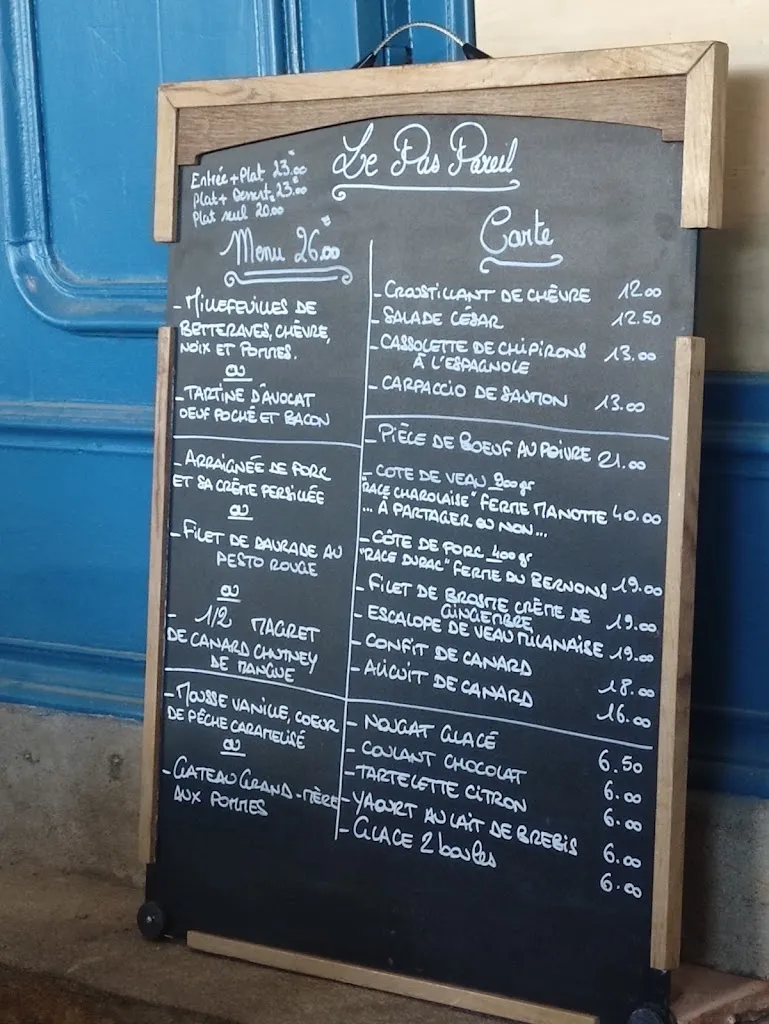 Le Pas Pareil
Entrée + Plat 23.00
Plat + Dessert 23.00
Plat seul 20.00
Menu 26.00 €
- MILLEFEUILLES DE
BETTERAVES, CHÈVRE,
NOIX ET POMMES.
OU
- TARTINE D'AVOCAT
OEUF POCHÉ ET BACON
- ARRAIGNÉE DE PORC
ET SA CRÈME PERSILLÉE
OU
- FILET DE DAURADE AU
PESTO ROUGE
OU
- 1/2 MAGRET
DE CANARD CHUTNEY
DE MANGUE
- MOUSSE VANILLE, COEUR
DE PÊCHE CARAMELISÉ
OU
- GATEAU GRAND-MÈRE
AUX POMMES
Carte
- CROUSTILLANT DE CHÈVRE 12.00
- SALADE CÉSAR 12.50
- CASSOLETTE DE CHIPIRONS 13.00
À L'ESPAGNOLE
- CARPACCIO DE SAUMON 13.00
- PIÈCE DE BOEUF AU POIVRE 21.00
- COTE DE VEAU 900gr
"RACE CHAROLAISE" FERME MANOTTE 40.00
... À PARTAGER OU NON...
- CÔTE DE PORC 400gr
"RACE DUROC" FERME DU BERNONS 19.00
- FILET DE BROSME CRÈME DE
GINGEMBRE 19.00
- ESCALOPE DE VEAU MILANAISE 19.00
- CONFIT DE CANARD 18.00
- ALICUIT DE CANARD 16.00
- NOUGAT GLACÉ 6.50
- COULANT CHOCOLAT 6.00
- TARTELETTE CITRON 6.00
- YAOURT AU LAIT DE BREBIS 6.00
- GLACE 2 boules 6.00